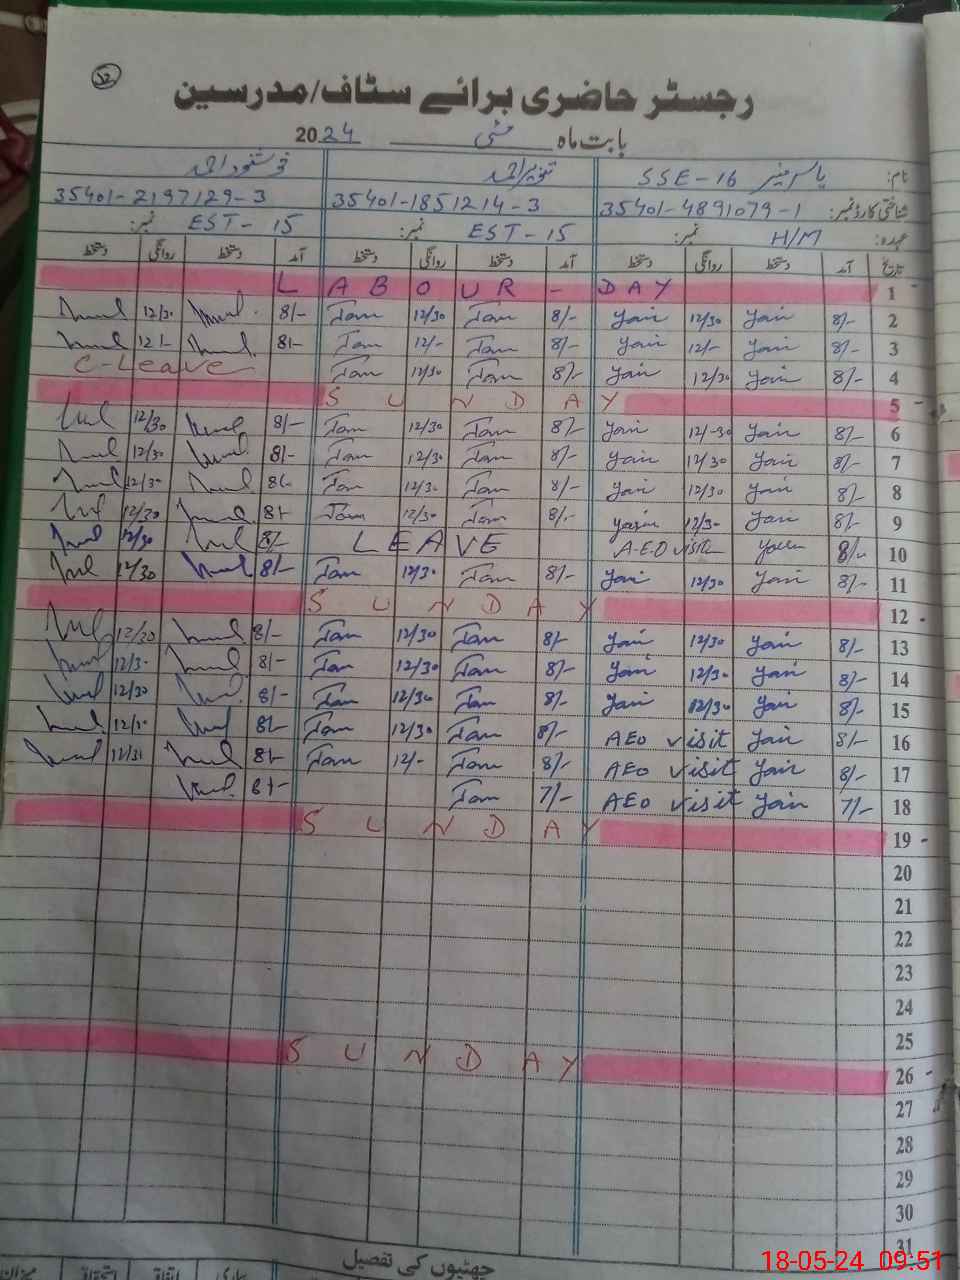 12
رجسٹر حاضری برائے سٹاف/مدرسین
بابت ماہ مئی 2024
نام: یاسر منیر SSE-16 تنویر احمد خوشنود احمد
شناختی کارڈ نمبر: 35401-4891079-1 35401-1851214-3 35401-2197129-3
عہدہ: H/M نمبر: EST-15 نمبر: EST-15 نمبر:
تاریخ آمد دستخط روانگی دستخط آمد دستخط روانگی دستخط آمد دستخط روانگی دستخط
1 LABOUR - DAY
2 8/- Yasir 12/30 Yasir 8/- Tam 12/30 Tam 8/- 12/30
3 8/- Yasir 12/- Yasir 8/- Tam 12/- Tam 8/- 12/-
4 8/- Yasir 12/30 Yasir 8/- Tam 12/30 Tam C-Leave
5 SUNDAY
6 8/- Yasir 12/-30 Yasir 8/- Tam 12/30 Tam 8/- 12/30
7 8/- Yasir 12/30 Yasir 8/- Tam 12/30 Tam 8/- 12/30
8 8/- Yasir 12/30 Yasir 8/- Tam 12/30 Tam 8/- 12/30
9 8/- Yasir 12/30 Yasir 8/- Tam 12/30 Tam 8/- 12/30
10 8/- A.E.O visit LEAVE 8/- 12/30
11 8/- Yasir 12/30 Yasir 8/- Tam 12/30 Tam 8/- 12/30
12 SUNDAY
13 8/- Yasir 12/30 Yasir 8/- Tam 12/30 Tam 8/- 12/30
14 8/- Yasir 12/30 Yasir 8/- Tam 12/30 Tam 8/- 12/30
15 8/- Yasir 12/30 Yasir 8/- Tam 12/30 Tam 8/- 12/30
16 8/- Yasir AEO visit 8/- Tam 12/30 Tam 8/- 12/30
17 8/- Yasir AEO visit 8/- Tam 12/- Tam 8/- 12/30
18 7/- Yasir AEO visit 7/- Tam 8/-
19 SUNDAY
20
21
22
23
24
25
26 SUNDAY
27
28
29
30
31
چھٹیوں کی تفصیل
میزان استحقاقیہ اتفاقیہ بیماری
18-05-24 09:51